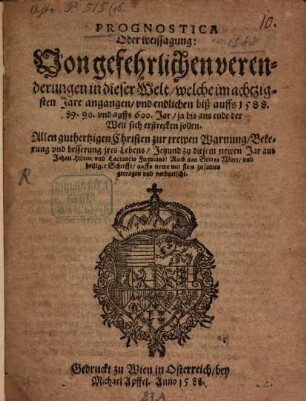 Astr. P. 515/16
10.
PROGNOSTICA
1588
Oder weissagung:
Von gefehrlichen veren-
derungen in dieser Welt/ welche im achtzig-
sten Jare angangen/ vnd endlichen biß auffs 1588.
89. 90. vnd auffs 600. Jar/ ja bis ans ende der
Welt sich erstrecken sollen.
Allen guthertzigen Christen zur trewen Warnung/ Beke-
rung vnd besserung jres Lebens/ Jtzund zu diesem newen Jar aus
Vnd Lactantio Firmiano/ Auch aus Gottes Wort/ vnd
heiliger Schrifft/ auffs newe mit fleis zusamen
getragen vnd verdeutscht.
Gedruckt zu Wien in Osterreich/ bey
Michael Apffel. Anno 1588.